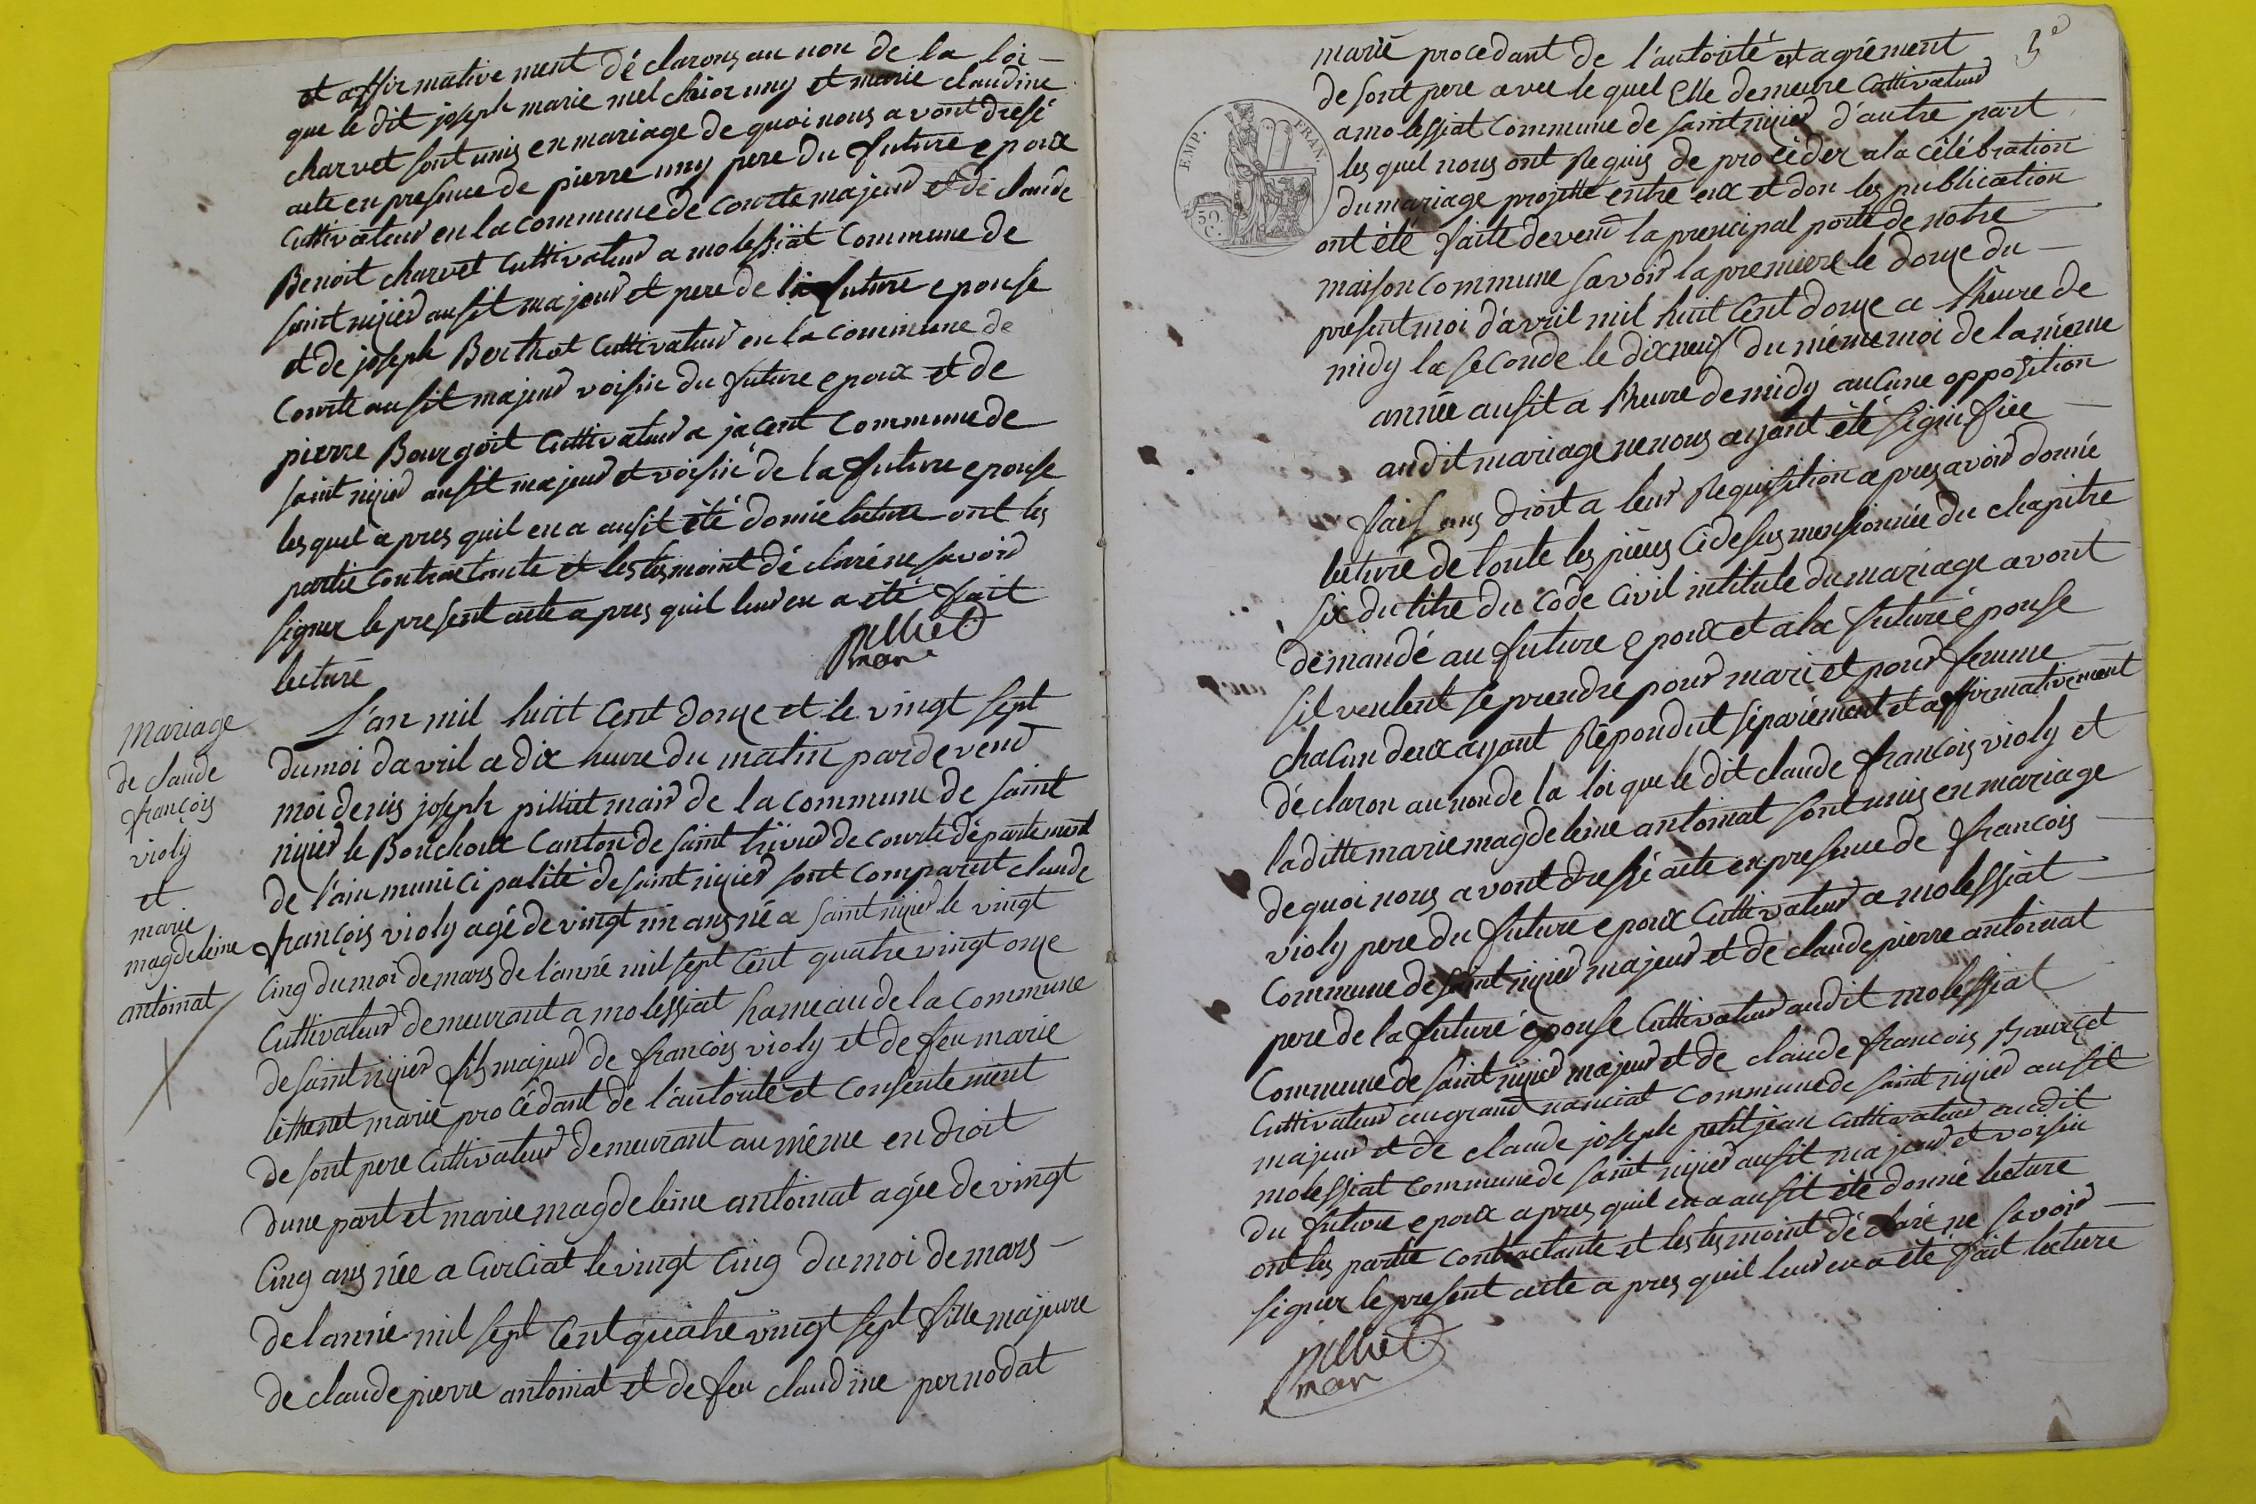 et affirmativement déclarons au non de la loi
que le dit joseph marie melchior uny et marie claudine
charvet sont unis en mariage de quoi nous avont dresé
acte en presence de pierre uny pere du future epoux
Cultivateur en la commune de courte majeur et de claude
Benoit charvet Cultivateur a molessiat Commune de
saint nizier ausit majeur et pere de la future epouse
et de joseph Berthot Cultivateur en la commune de
Courte ausit majeur voisin du future epoux et de
pierre Bourgoit Cultivateur a jacent Commune de
saint nizier ausit majeur et voisin de la future epouse
les quel apres quil en a ausit été donné lecture ont les
partie contractante et les tesmoint déclaré ne savoir
signer le present acte apres quil leur en a été fait
lecture
pilliet
mair
Mariage
de claude
françois
violy
et
marie
magdeleine
antoinat
L'an mil huit Cent douze et le vingt sept
du moi davril a dix heure du matin pardevend
moi denis joseph pilliet mair de la commune de saint
nizier le Bouchoux Canton de saint trivier de courte département
de l'ain municipalité de saint nizier sont comparut claude
françois violy agé de vingt un ans né a saint nizier le vingt
Cinq du moi de mars de l'anné mil sept Cent quatre vingt onze
Cultivateur demeurant a molessiat hameau de la Commune
de saint nizier fils majeur de françois violy et de feu marie
marié procédant de l'autorité et Consentement
de sont pere Cultivateur demeurant au même endroit
dune part et marie magdeleine antoinat agée de vingt
Cinq ans née a Curciat le vingt Cinq du moi de mars
de lannée mil sept Cent quatre vingt sept fille majeure
de claude pierre antoinat et de feu claudine pernodat
3e
EMP. FRAN.
50 C.
marié procedant de l'autorité et agrément
de sont pere avec le quel Elle demeure Cultivateur
a molessiat Commune de saint nizier d'autre part
les quel nous ont Requis de procéder a la célébration
du mariage projetté entre eux et don les publication
ont été faite devend la prencipal porte de notre
maison commune savoir la premiere le douze du
present moi d'avril mil huit Cent douze a l'heure de
midy la seconde le dix neuf du même moi de la même
année ausit a l'heure de midy aucune opposition
audit mariage ne nous ayant été signifiée
faisans droit a leur Requisition apres avoir donné
lecture de toute les pieces Cidesus mensionnée du chapitre
six du titre du code Civil intitule du mariage avont
demandé au future epoux et a la future épouse
sil veulent se prendre pour mari et pour femme
chacun deux ayant Répondut séparément et affirmativement
déclaron au non de la loi que le dit claude françois violy et
la ditte marie magdeleine antoinat sont unis en mariage
de quoi nous avont dressé acte en presence de françois
violy pere du future epoux Cultivateur a molessiat
Commune de saint nizier majeur et de claude pierre antoinat
pere de la future épouse Cultivateur audit molessiat
Commune de saint nizier majeur et de claude françois
Cultivateur au grand nanciat Commune de saint nizier ausit
majeur et de claude joseph petitjean Cultivateur audit
molessiat Commune de saint nizier ausit majeur et voisin
du future epoux apres quil en a ausit été donné lecture
ont les partie contractante et les tesmoint déclaré ne savoir
signer le present acte apres quil leur en a été fait lecture
pilliet
mair